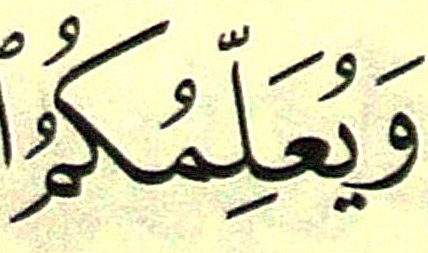 وَيُعَلِّمُكُمُ